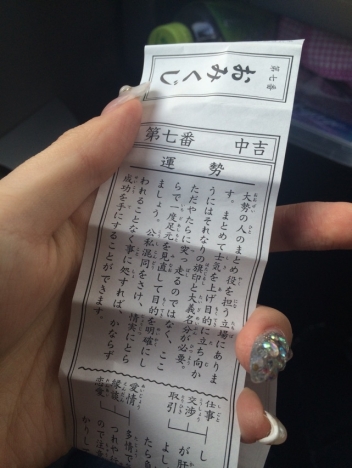 第七番
おみくじ
第七番 中吉
運勢
大勢の人のまとめ役を担う立場にありま
す。まとめて士気を上げ目的に立ち向か
うにはそれなりの旗印と大義名分が必要。
ただやたらに突っ走るのではなく、ここ
らで一度足元を見直して目的を明確にし
ましょう。公私混同をさけ、情実にとら
われることなく事に処すれば、かならず
成功を手にすることができます。
仕事
交渉
取引
愛情
縁談
恋愛